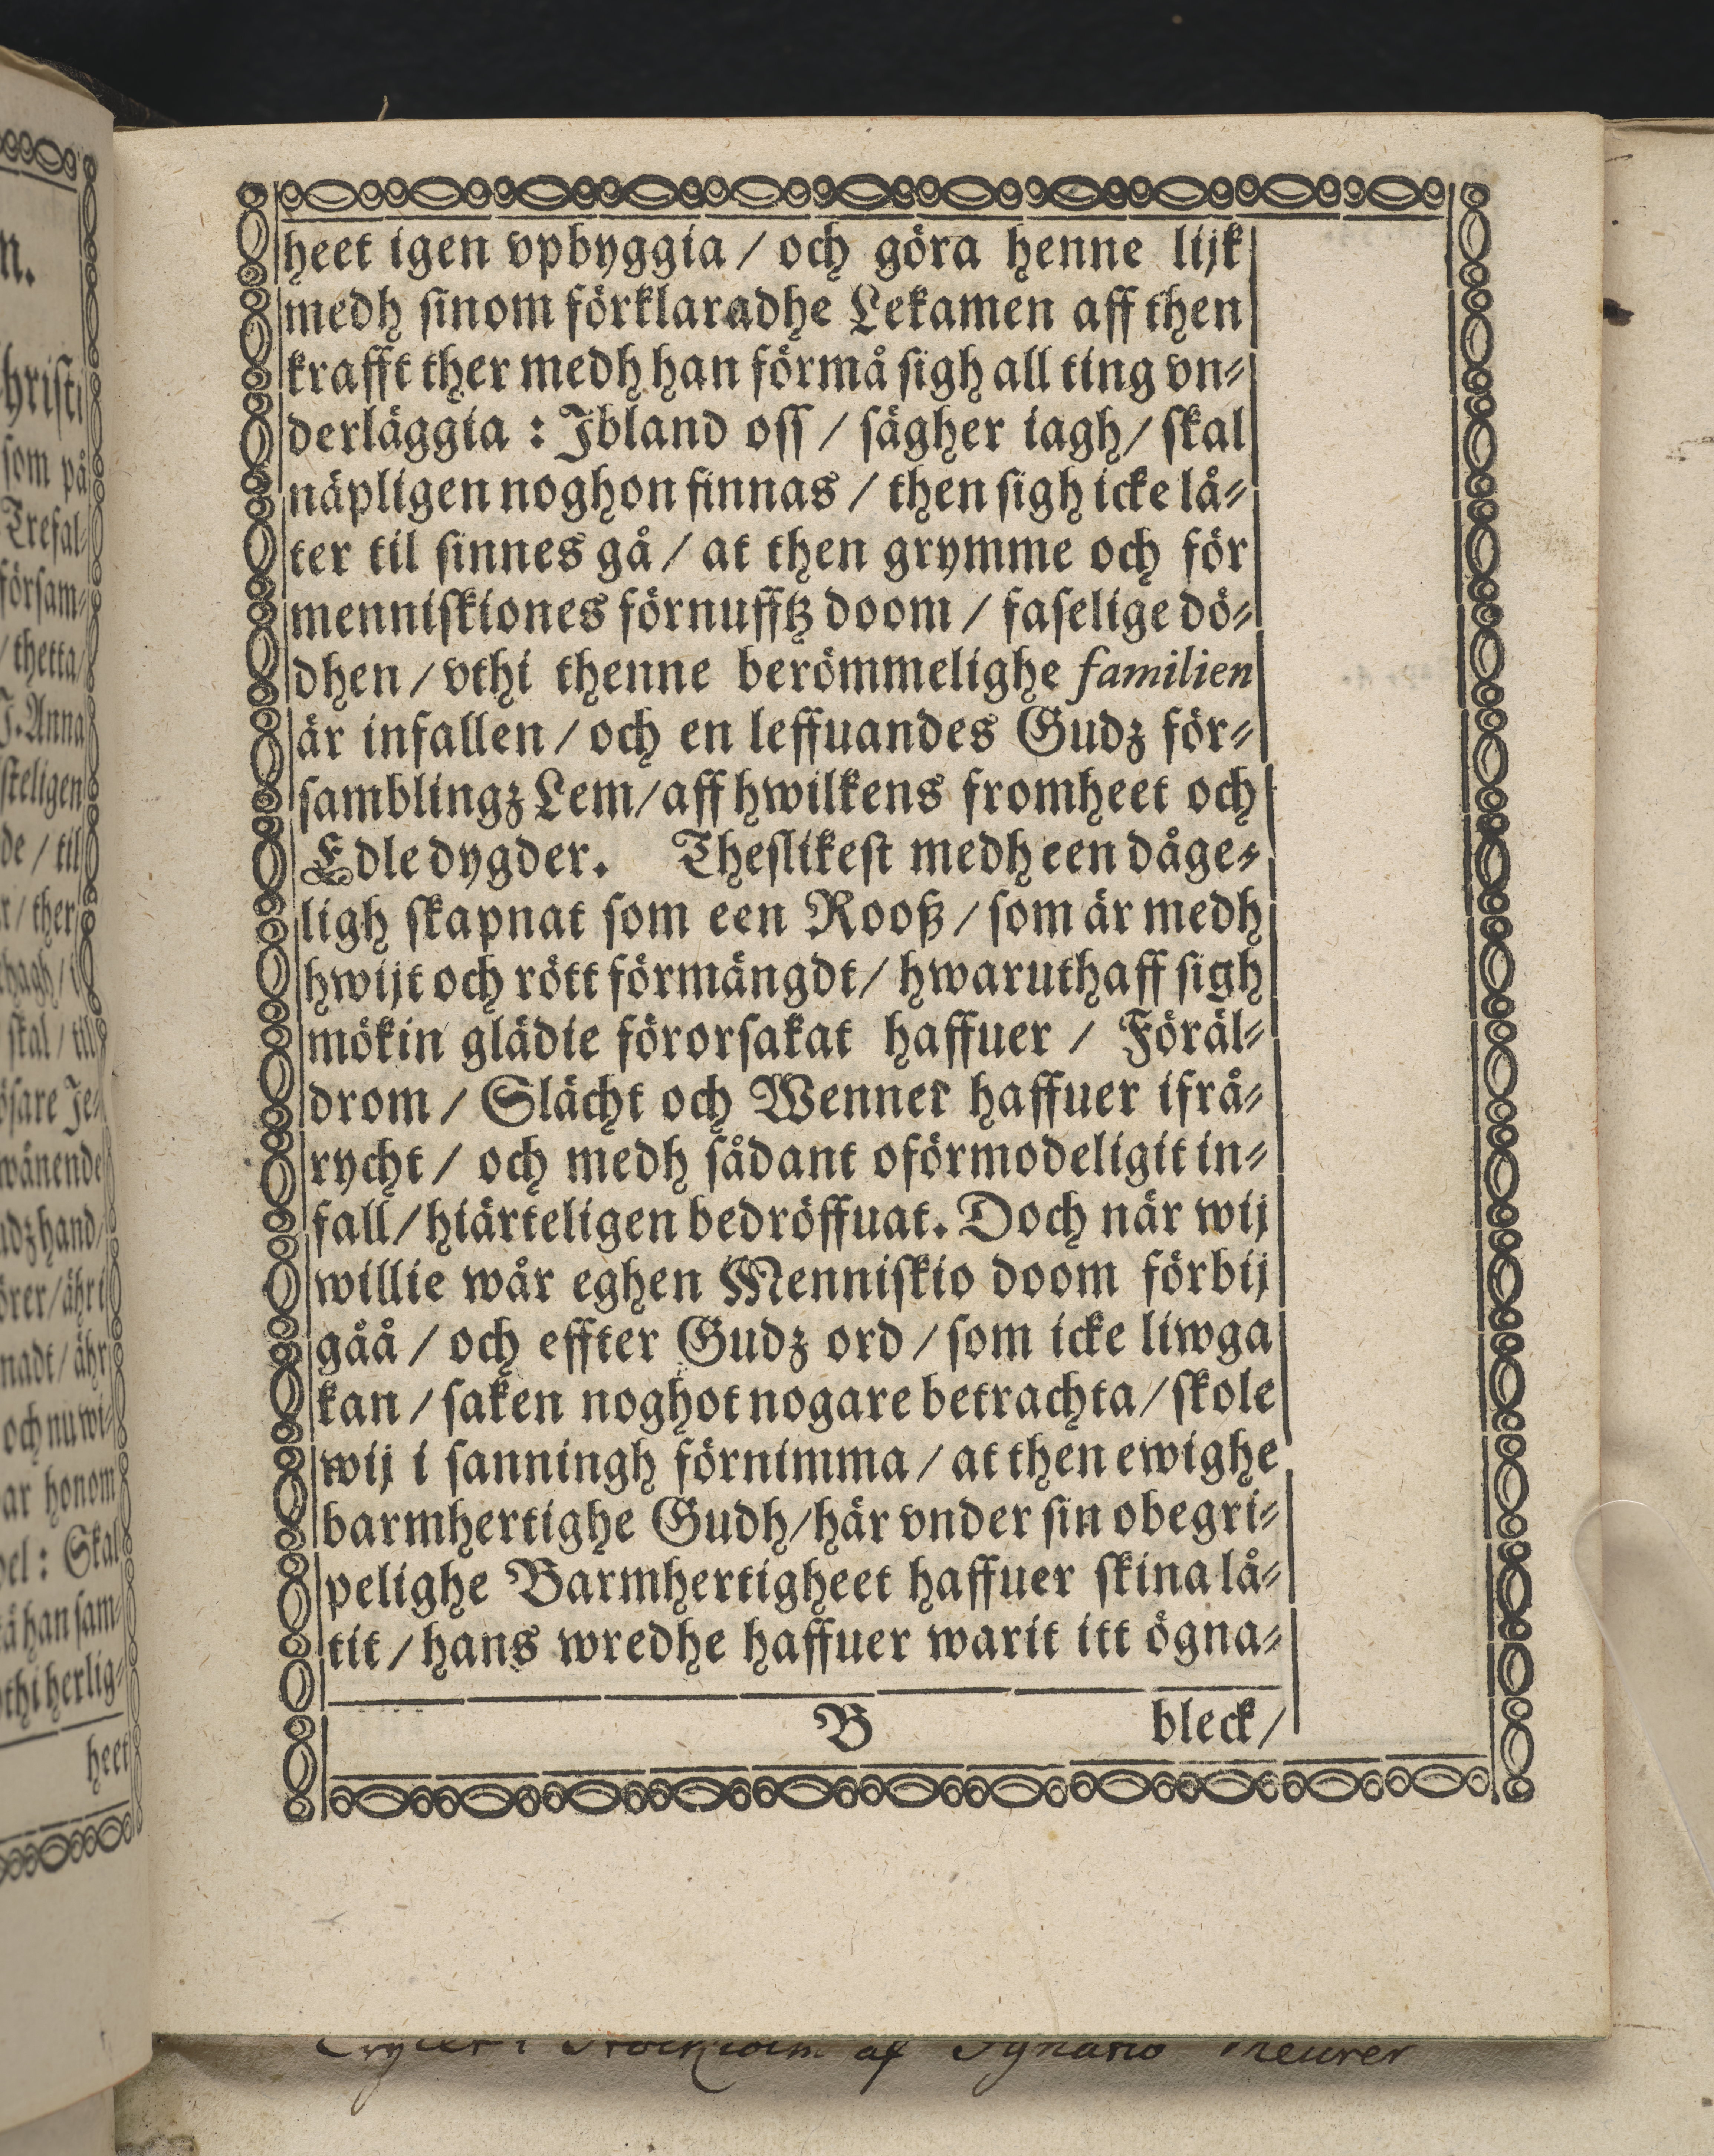 heet igen vpbyggia / och göra henne lijk
medh ſinom förklaradhe Lekamen aff then
krafft ther medh han förmå ſigh all ting vn⸗
derläggia : Jbland oſſ / ſägher iagh / ſkal
näpligen noghon finnas / then ſigh icke lå⸗
ter til ſinnes gå / at then grymme och för
menniſkiones förnufftz doom / faſelige dö⸗
dhen / vthi thenne berömmelighe familien
är infallen / och en leffuandes Gudz för⸗
ſamblingz Lem / aff hwilkens fromheet och
Edle dygder. Theſlikeſt medh een dåge⸗
ligh ſkapnat ſom een Rooß / ſom är medh
hwijt och rött förmängdt / hwaruthaff ſigh
mökin glädie förorſakat haffuer / Föräl⸗
drom / Slächt och Wenner haffuer ifrå⸗
rycht / och medh ſådant oförmodeligit in⸗
fall / hiärteligen bedröffuat. Doch när wij
willie wår eghen Menniſkio doom förbij
gåå / och effter Gudz ord / ſom icke liwga
kan / ſaken noghot nogare betrachta / ſkole
wij i ſanningh förnimma / at then ewighe
barmhertighe Gudh / här vnder ſin obegri⸗
pelighe Barmhertigheet haffuer ſkina lå⸗
tit / hans wredhe haffuer warit itt ögna⸗
B bleck /
n.
hriſti
ſom på
Trefal⸗
förſam⸗
/ thetta /
J. Anna
ſteligen
de / til
r / ther
hagh / i
ſkal / til
öſare Je⸗
wänende
udz hand /
örer / ähr i
nadt / ähr
och nu wi⸗
ar honom
del : Skal
å han ſam⸗
thi herlig⸗
heet
Stockholm af Ignatio Meurer